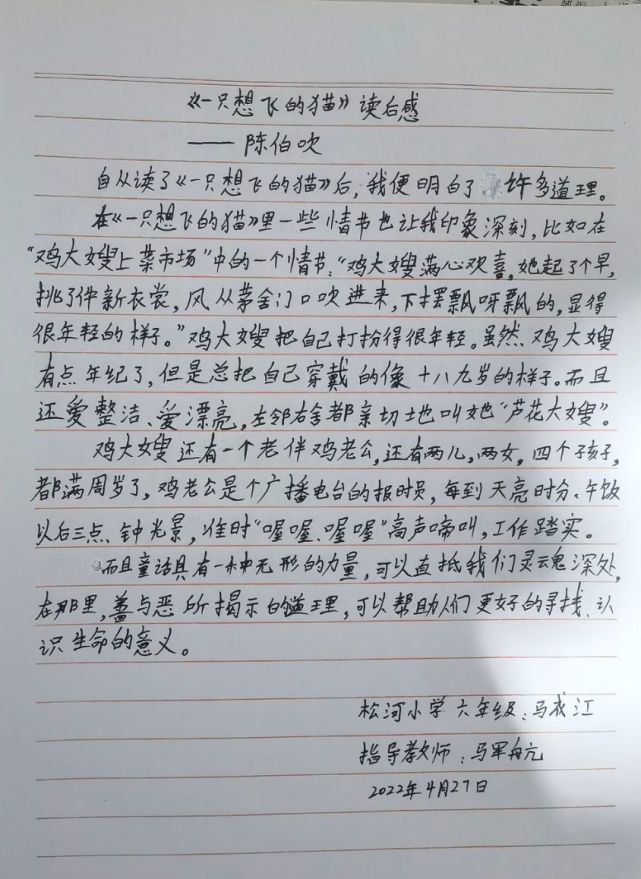 《一只想飞的猫》读后感
——陈伯吹
自从读了《一只想飞的猫》后，我便明白了许多道理。
在《一只想飞的猫》里一些情节也让我印象深刻，比如在
“鸡大嫂上菜市场”中的一个情节、“鸡大嫂满心欢喜，她起了个早，
挑了件新衣裳，风从茅舍门口吹进来，下摆飘呀飘的，显得
很年轻的样子。”鸡大嫂把自己打扮得很年轻。虽然鸡大嫂
有点年纪了，但是总把自己穿戴的像十八九岁的样子。而且
还爱整洁、爱漂亮，左邻右舍都亲切地叫她“芦花大嫂”。
鸡大嫂还有一个老伴鸡老公，还有两儿，两女，四个孩子，
都满周岁了，鸡老公是个广播电台的报时员，每到天亮时分、午饭
以后三点钟光景，准时“喔喔、喔喔”高声啼叫，工作踏实。
而且童话具有一种无形的力量，可以直抵我们灵魂深处，
在那里，善与恶所揭示的道理，可以帮助人们更好的寻找、认
识生命的意义。
松河小学六年级：马成江
指导教师：马军
2022年4月27日